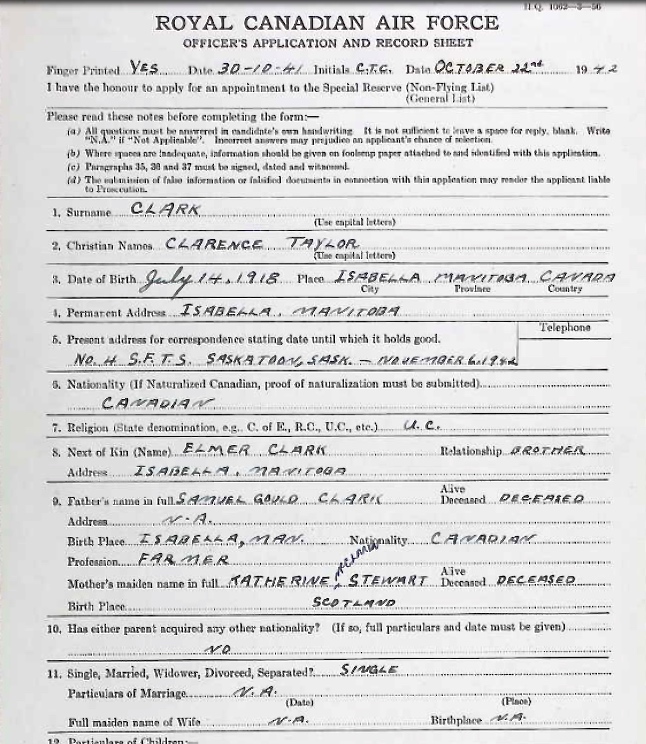 H.Q. 1062—3—56
ROYAL CANADIAN AIR FORCE
OFFICER'S APPLICATION AND RECORD SHEET
Finger Printed YES Date 30-10-41 Initials C.T.C. Date OCTOBER 22nd 1942
I have the honour to apply for an appointment to the Special Reserve (Non-Flying List)
(General List)
Please read these notes before completing the form:—
(a) All questions must be answered in candidate's own handwriting. It is not sufficient to leave a space for reply, blank. Write
"N.A." if "Not Applicable". Incorrect answers may prejudice an applicant's chance of selection.
(b) Where spaces are inadequate, information should be given on foolscap paper attached to and identified with this application.
(c) Paragraphs 35, 36 and 37 must be signed, dated and witnessed.
(d) The submission of false information or falsified documents in connection with this application may render the applicant liable
to Prosecution.
1. Surname CLARK
(Use capital letters)
2. Christian Names CLARENCE TAYLOR
(Use capital letters)
3. Date of Birth July 14, 1918 Place ISABELLA MANITOBA CANADA
City Province Country
4. Permanent Address ISABELLA, MANITOBA
5. Present address for correspondence stating date until which it holds good. Telephone
NO. 4 S.F.T.S. SASKATOON, SASK. — NOVEMBER 6, 1942
6. Nationality (If Naturalized Canadian, proof of naturalization must be submitted)
CANADIAN
7. Religion (State denomination, e.g., C. of E., R.C., U.C., etc.) U.C.
8. Next of Kin (Name) ELMER CLARK Relationship BROTHER
Address ISABELLA, MANITOBA
9. Father's name in full SAMUEL GOULD CLARK Alive
Deceased DECEASED
Address N.A.
Birth Place ISABELLA, MAN. Nationality CANADIAN
Profession FARMER
Mother's maiden name in full KATHERINE STEWART Alive
Deceased DECEASED
Birth Place SCOTLAND
10. Has either parent acquired any other nationality? (If so, full particulars and date must be given)
NO
11. Single, Married, Widower, Divorced, Separated? SINGLE
Particulars of Marriage N.A.
(Date) (Place)
Full maiden name of Wife N.A. Birthplace N.A.
12. Particulars of Children:—